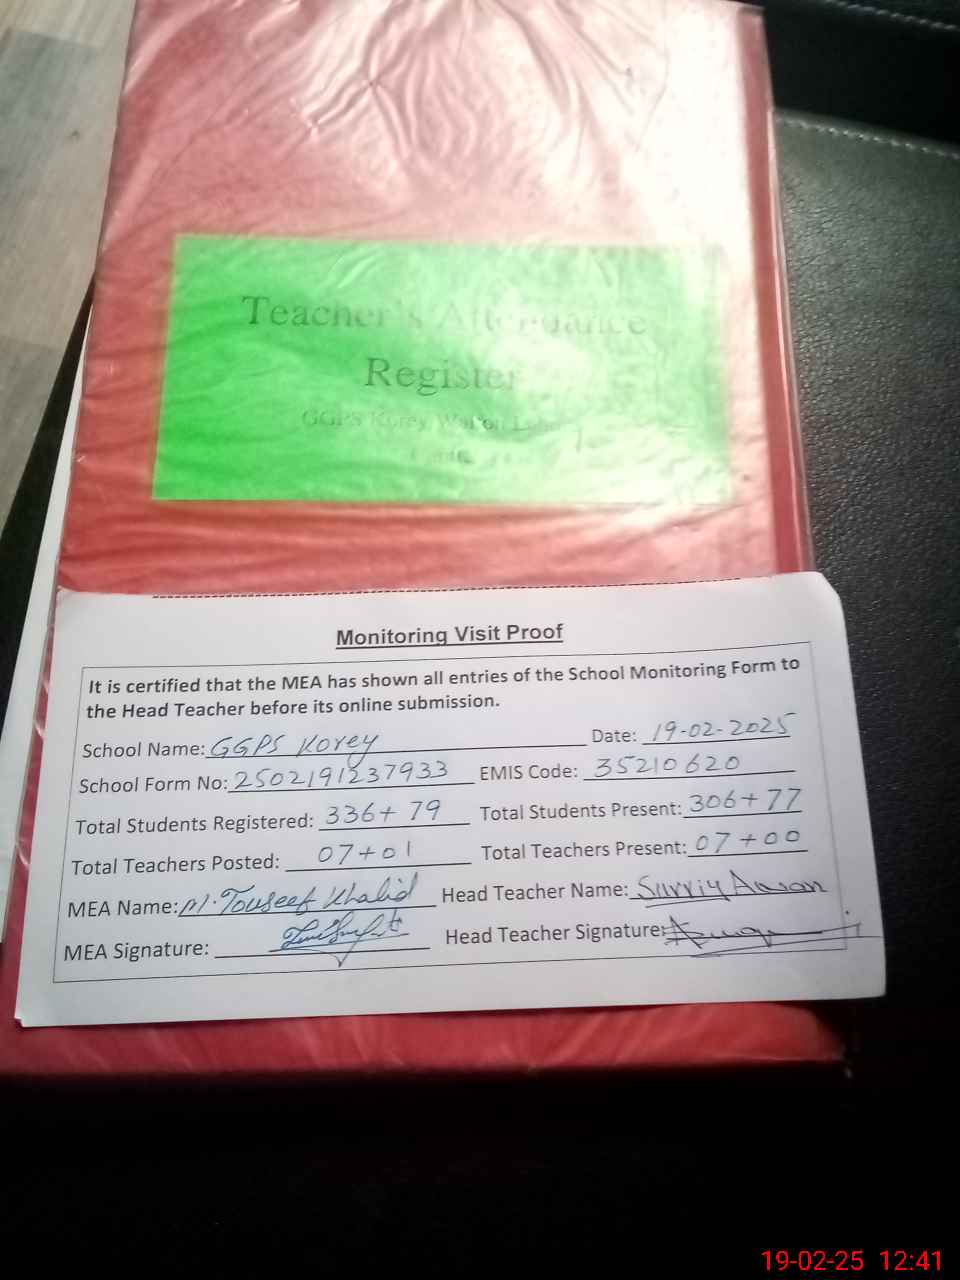 Teacher's Attendance
Register
GGPS Korey, Walton
Monitoring Visit Proof
It is certified that the MEA has shown all entries of the School Monitoring Form to
the Head Teacher before its online submission.
School Name: GGPS Korey Date: 19-02-2025
School Form No: 2502191237933 EMIS Code: 35210620
Total Students Registered: 336+79 Total Students Present: 306+77
Total Teachers Posted: 07+01 Total Teachers Present: 07+00
MEA Name: M. Touseef Khalid Head Teacher Name:
MEA Signature: Head Teacher Signature:
19-02-25 12:41